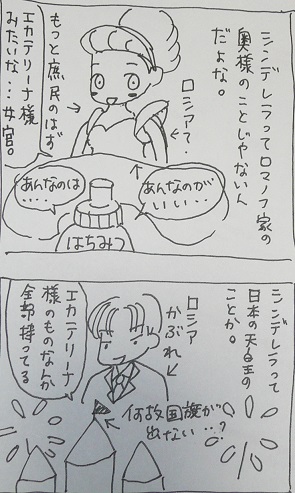 シンデレラってロマノフ家の
奥様のことじゃないん
だよな。
ロシアて..
もっと庶民のはず
エカテリーナ様
みたいな…女官。
あんなのが
いい・・
あんなのは
・・・・
はちみつ
シンデレラって
日本の天皇の
ことか。
ロシア
かぶれ
エカテリーナ
様のものなんか
全部持ってる
何故国旗が
出ない..?